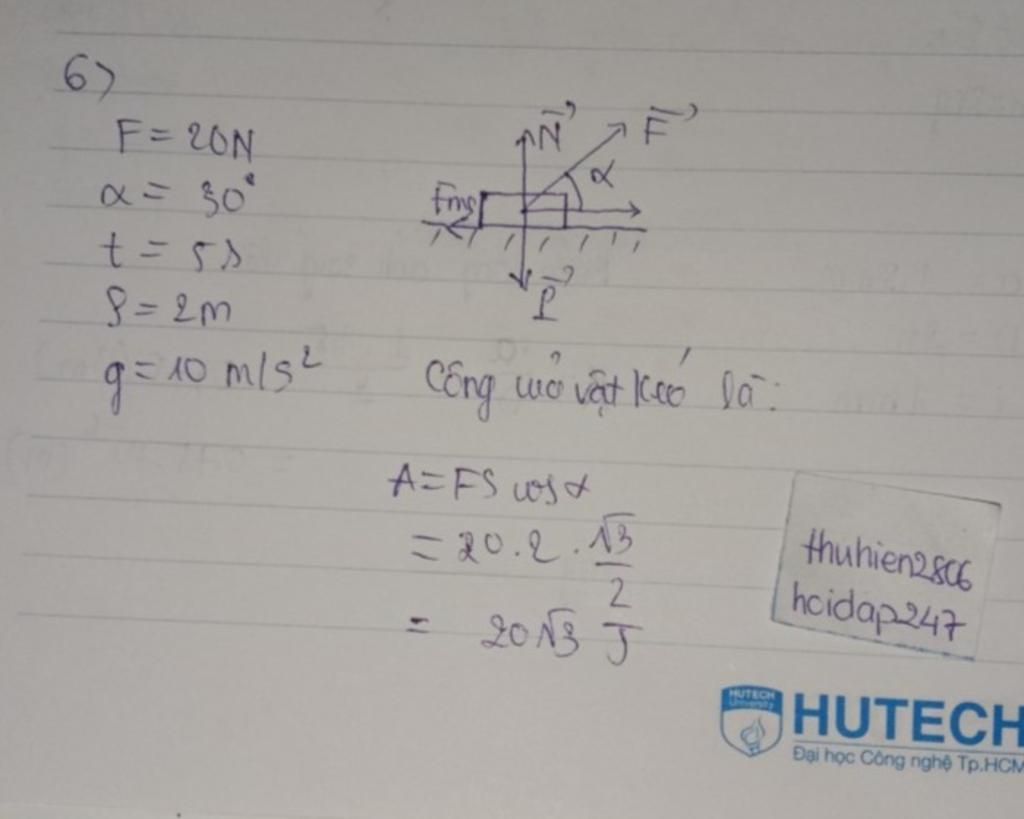 6)
F = 20N
α = 30°
t = 5s
S = 2m
g = 10 m/s²
N
F
α
Fms
P
Công của vật kéo là:
A = FS cos α
= 20 . 2 . √3/2
= 20√3 J
thuhien2806
hoidap247
HUTECH
University
HUTECH
Đại học Công nghệ Tp.HCM